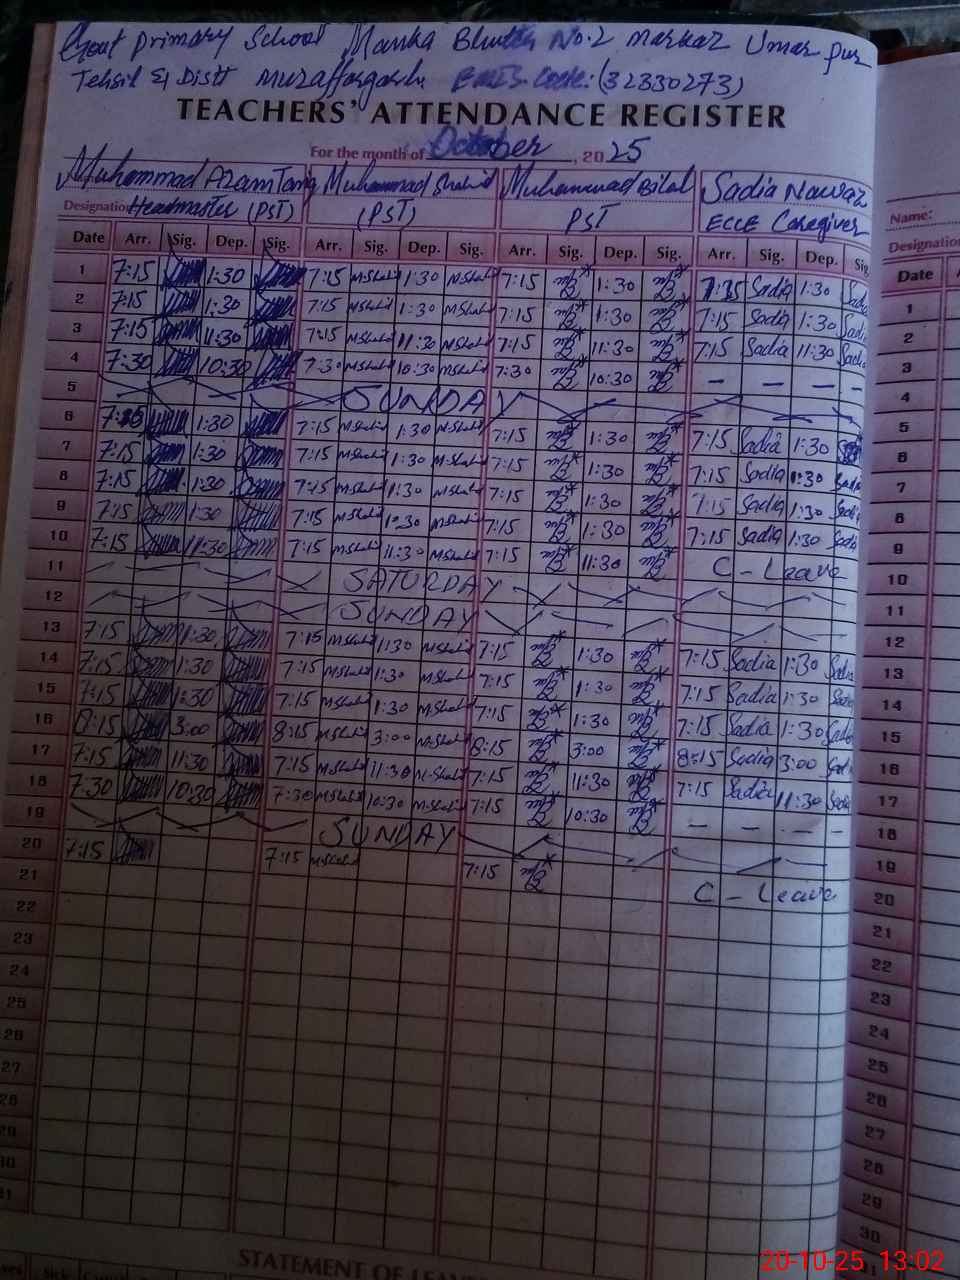 Govt Primary School Manka Bhutta No.2 markaz Umar pur
Tehsil & Distt muzaffargarh. EMIS. Code: (32330273)
TEACHERS' ATTENDANCE REGISTER
For the month of October, 2025
Muhammad Azam Muhammad Shahid Muhammad Bilal Sadia Nawaz
Designation Headmaster (PST) (PST) PST ECCE Caregiver
Date Arr. Sig. Dep. Sig. Arr. Sig. Dep. Sig. Arr. Sig. Dep. Sig. Arr. Sig. Dep. Sig.
1 7:15 1:30 7:15 MShahid 1:30 MShahid 7:15 1:30 7:15 Sadia 1:30 Sadia
2 7:15 1:30 7:15 MShahid 1:30 MShahid 7:15 1:30 7:15 Sadia 1:30 Sadia
3 7:15 11:30 7:15 MShahid 11:30 MShahid 7:15 11:30 7:15 Sadia 11:30 Sadia
4 7:30 10:30 7:30 MShahid 10:30 MShahid 7:30 10:30 – – – –
5 SUNDAY
6 7:15 1:30 7:15 MShahid 1:30 MShahid 7:15 1:30 7:15 Sadia 1:30
7 7:15 1:30 7:15 MShahid 1:30 MShahid 7:15 1:30 7:15 Sadia 1:30 Sadia
8 7:15 1:30 7:15 MShahid 1:30 MShahid 7:15 1:30 7:15 Sadia 1:30 Sadia
9 7:15 1:30 7:15 MShahid 1:30 MShahid 7:15 1:30 7:15 Sadia 1:30 Sadia
10 7:15 11:30 7:15 MShahid 11:30 MShahid 7:15 11:30 C - Leave
11 SATURDAY
12 SUNDAY
13 7:15 1:30 7:15 MShahid 1:30 MShahid 7:15 1:30 7:15 Sadia 1:30 Sadia
14 7:15 1:30 7:15 MShahid 1:30 MShahid 7:15 1:30 7:15 Sadia 1:30 Sadia
15 7:15 1:30 7:15 MShahid 1:30 MShahid 7:15 1:30 7:15 Sadia 1:30 Sadia
16 8:15 3:00 8:15 MShahid 3:00 MShahid 8:15 3:00 8:15 Sadia 3:00 Sadia
17 7:15 11:30 7:15 MShahid 11:30 MShahid 7:15 11:30 7:15 Sadia 11:30 Sadia
18 7:30 10:30 7:30 MShahid 10:30 MShahid 7:15 10:30 – – – –
19 SUNDAY
20 7:15 7:15 MShahid 7:15 C - Leave
21
22
23
24
25
26
27
28
29
30
31
STATEMENT OF
Name:
Designation
Date
1
2
3
4
5
6
7
8
9
10
11
12
13
14
15
16
17
18
19
20
21
22
23
24
25
26
27
28
29
30
20-10-25 13:02